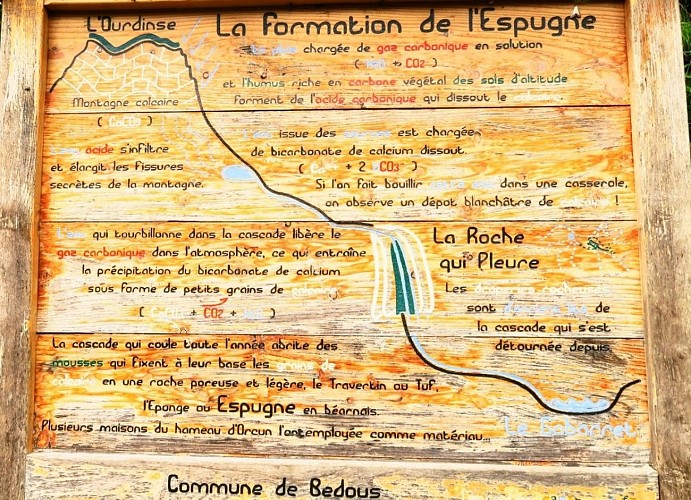 L'Ourdinse
La formation de l'Espugne
chargée de gaz carbonique en solution
( H2O + CO2 )
et l'humus riche en carbone végétal des sols d'altitude
forment de l'acide carbonique qui dissout le
Montagne calcaire
( CaCO3 )
acide s'infiltre
et élargit les fissures
secrètes de la montagne.
L'eau issue des est chargée
de bicarbonate de calcium dissout.
( + 2 CO3- )
Si l'on fait bouillir dans une casserole,
on observe un dépôt blanchâtre de calcaire !
L'eau qui tourbillonne dans la cascade libère le
gaz carbonique dans l'atmosphère, ce qui entraîne
la précipitation du bicarbonate de calcium
sous forme de petits grains de calcaire.
( CaCO3 + CO2 + )
La Roche
qui Pleure
Les
sont de
la cascade qui s'est
détournée depuis.
La cascade qui coule toute l'année abrite des
mousses qui fixent à leur base les grains de
calcaire en une roche poreuse et légère, le Travertin ou Tuf,
l'Eponge ou Espugne en béarnais.
Plusieurs maisons du hameau d'Orcun l'ont employée comme matériau...
Le Gabarret
Commune de Bedous